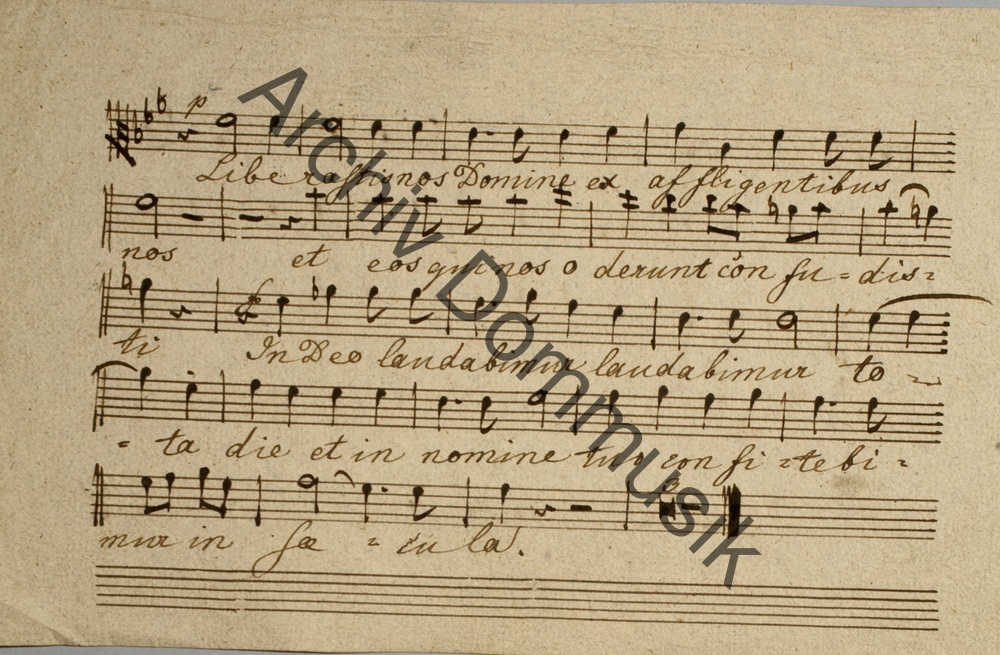 p
Libe rastis nos Domine ex af fligentibus
nos et eos qui nos o derunt con fu - dis-
ti In Deo laudabimur laudabimur to -
- ta die et in nomine tuo con fi - te bi -
mur in sæ - cu la.
3
Archiv Dommusik